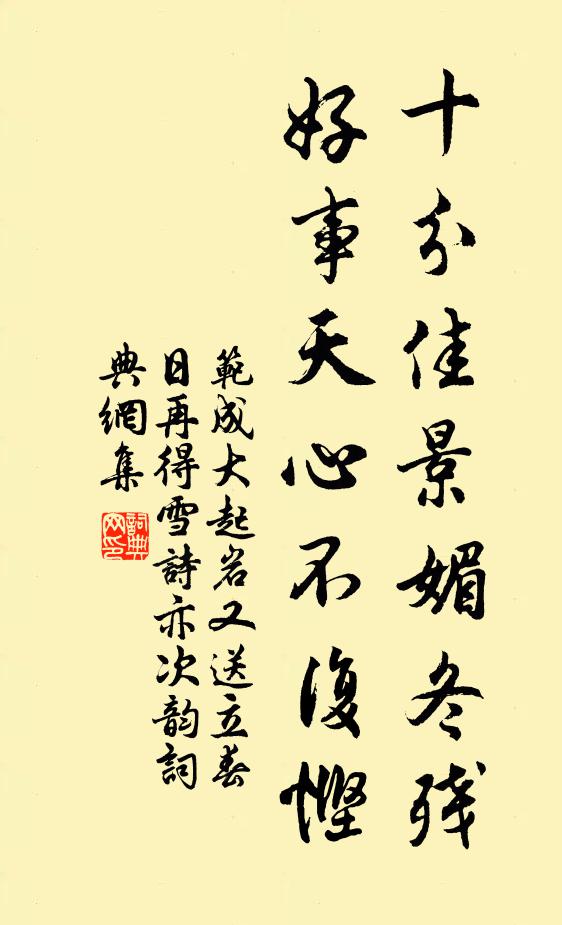 十分佳景媚冬残
好事天心不復慳
範成大起岩又送立春
日再得雪詩亦次韵詞
典網集
詞典網印